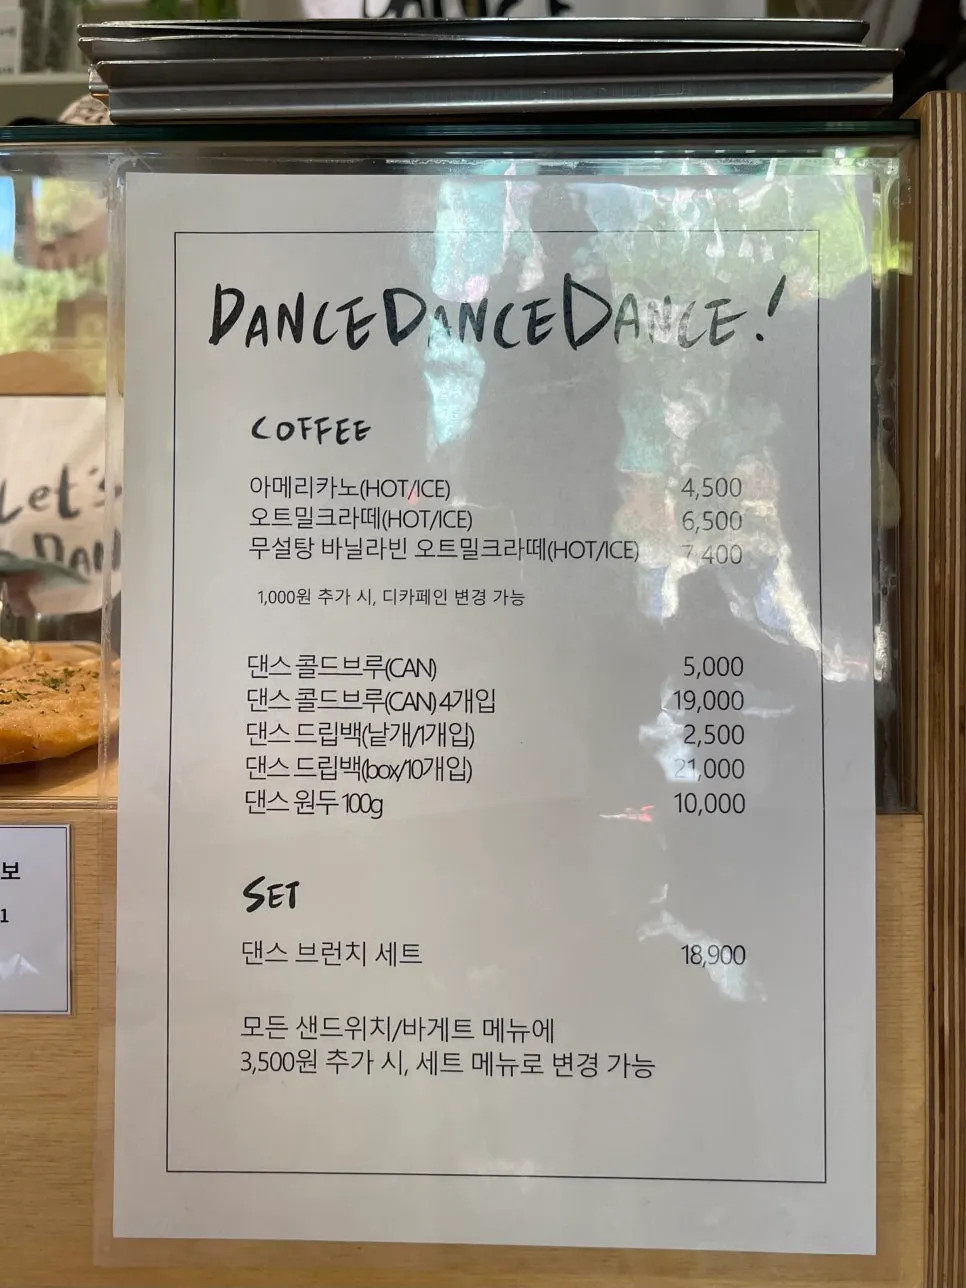 DANCE DANCE DANCE!
COFFEE
아메리카노(HOT/ICE) 4,500
오트밀크라떼(HOT/ICE) 6,500
무설탕 바닐라빈 오트밀크라떼(HOT/ICE) 7,400
1,000원 추가 시, 디카페인 변경 가능
댄스 콜드브루(CAN) 5,000
댄스 콜드브루(CAN) 4개입 19,000
댄스 드립백(낱개/1개입) 2,500
댄스 드립백(box/10개입) 21,000
댄스 원두 100g 10,000
SET
댄스 브런치 세트 18,900
모든 샌드위치/바게트 메뉴에
3,500원 추가 시, 세트 메뉴로 변경 가능
Let's
보
1